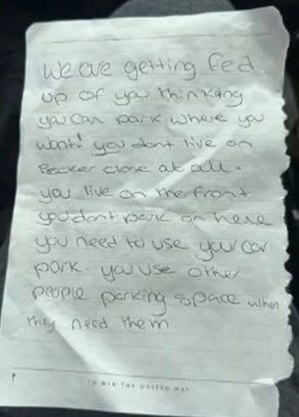 We are getting fed
up of you thinking
you can park where you
want! you dont live on
Becker close at all.
you live on the front
you dont park on here
you need to use your car
park. you use other
people parking space when
they need them